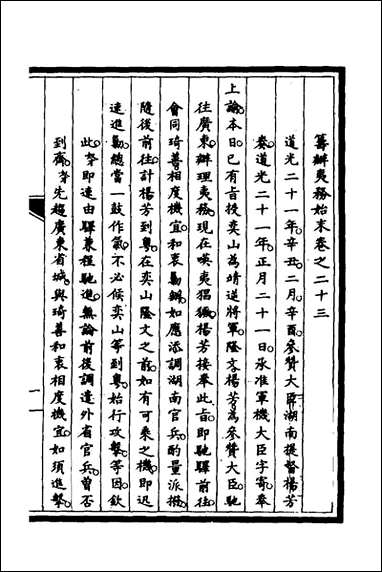 籌辦夷務始末卷之二十三
道光二十一年辛丑二月辛酉參贊大臣湖南提督楊芳
奏道光二十一年正月二十一日承准軍機大臣字寄奉
上諭本日已有旨授奕山為靖逆將軍隆文楊芳為參贊大臣馳
往廣東辦理夷務現在暎夷猖獗楊芳接奉此旨即馳驛前往
會同琦善相度機宜和衷勦辦如應添調湖南官兵酌量派撥
隨後前往計楊芳到粵在奕山隆文之前如有可乘之機即迅
速進勦總當一鼓作氣不必候奕山等到粵始行攻擊等因欽
此臣即速由驛兼程馳進無論前後調遣外省官兵曾否
到齊先趨廣東省城與琦善和衷相度機宜如須進擊
一